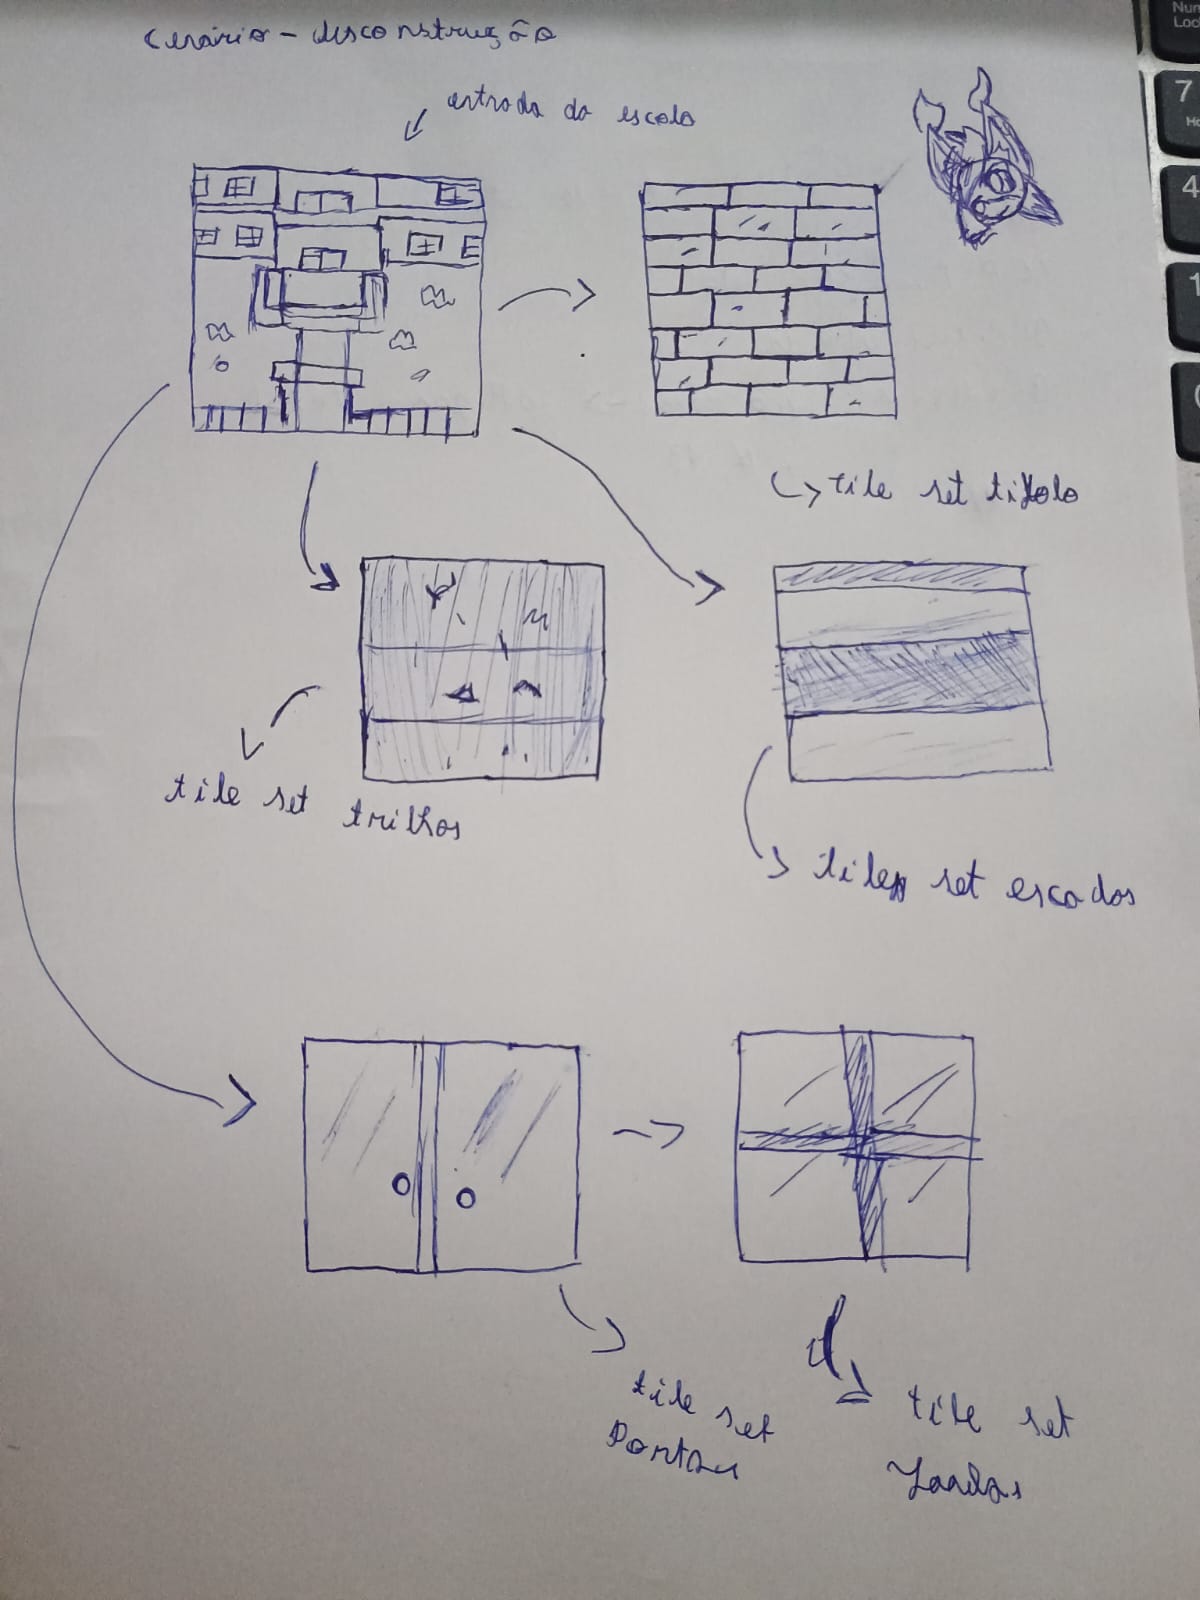 Cenário - desconstrução
entrada da escola
tile set tijolo
tile set
trilhos
tile set escadas
tile set
Portas
tile set
Num
Loc
7
Ho
4
1
0